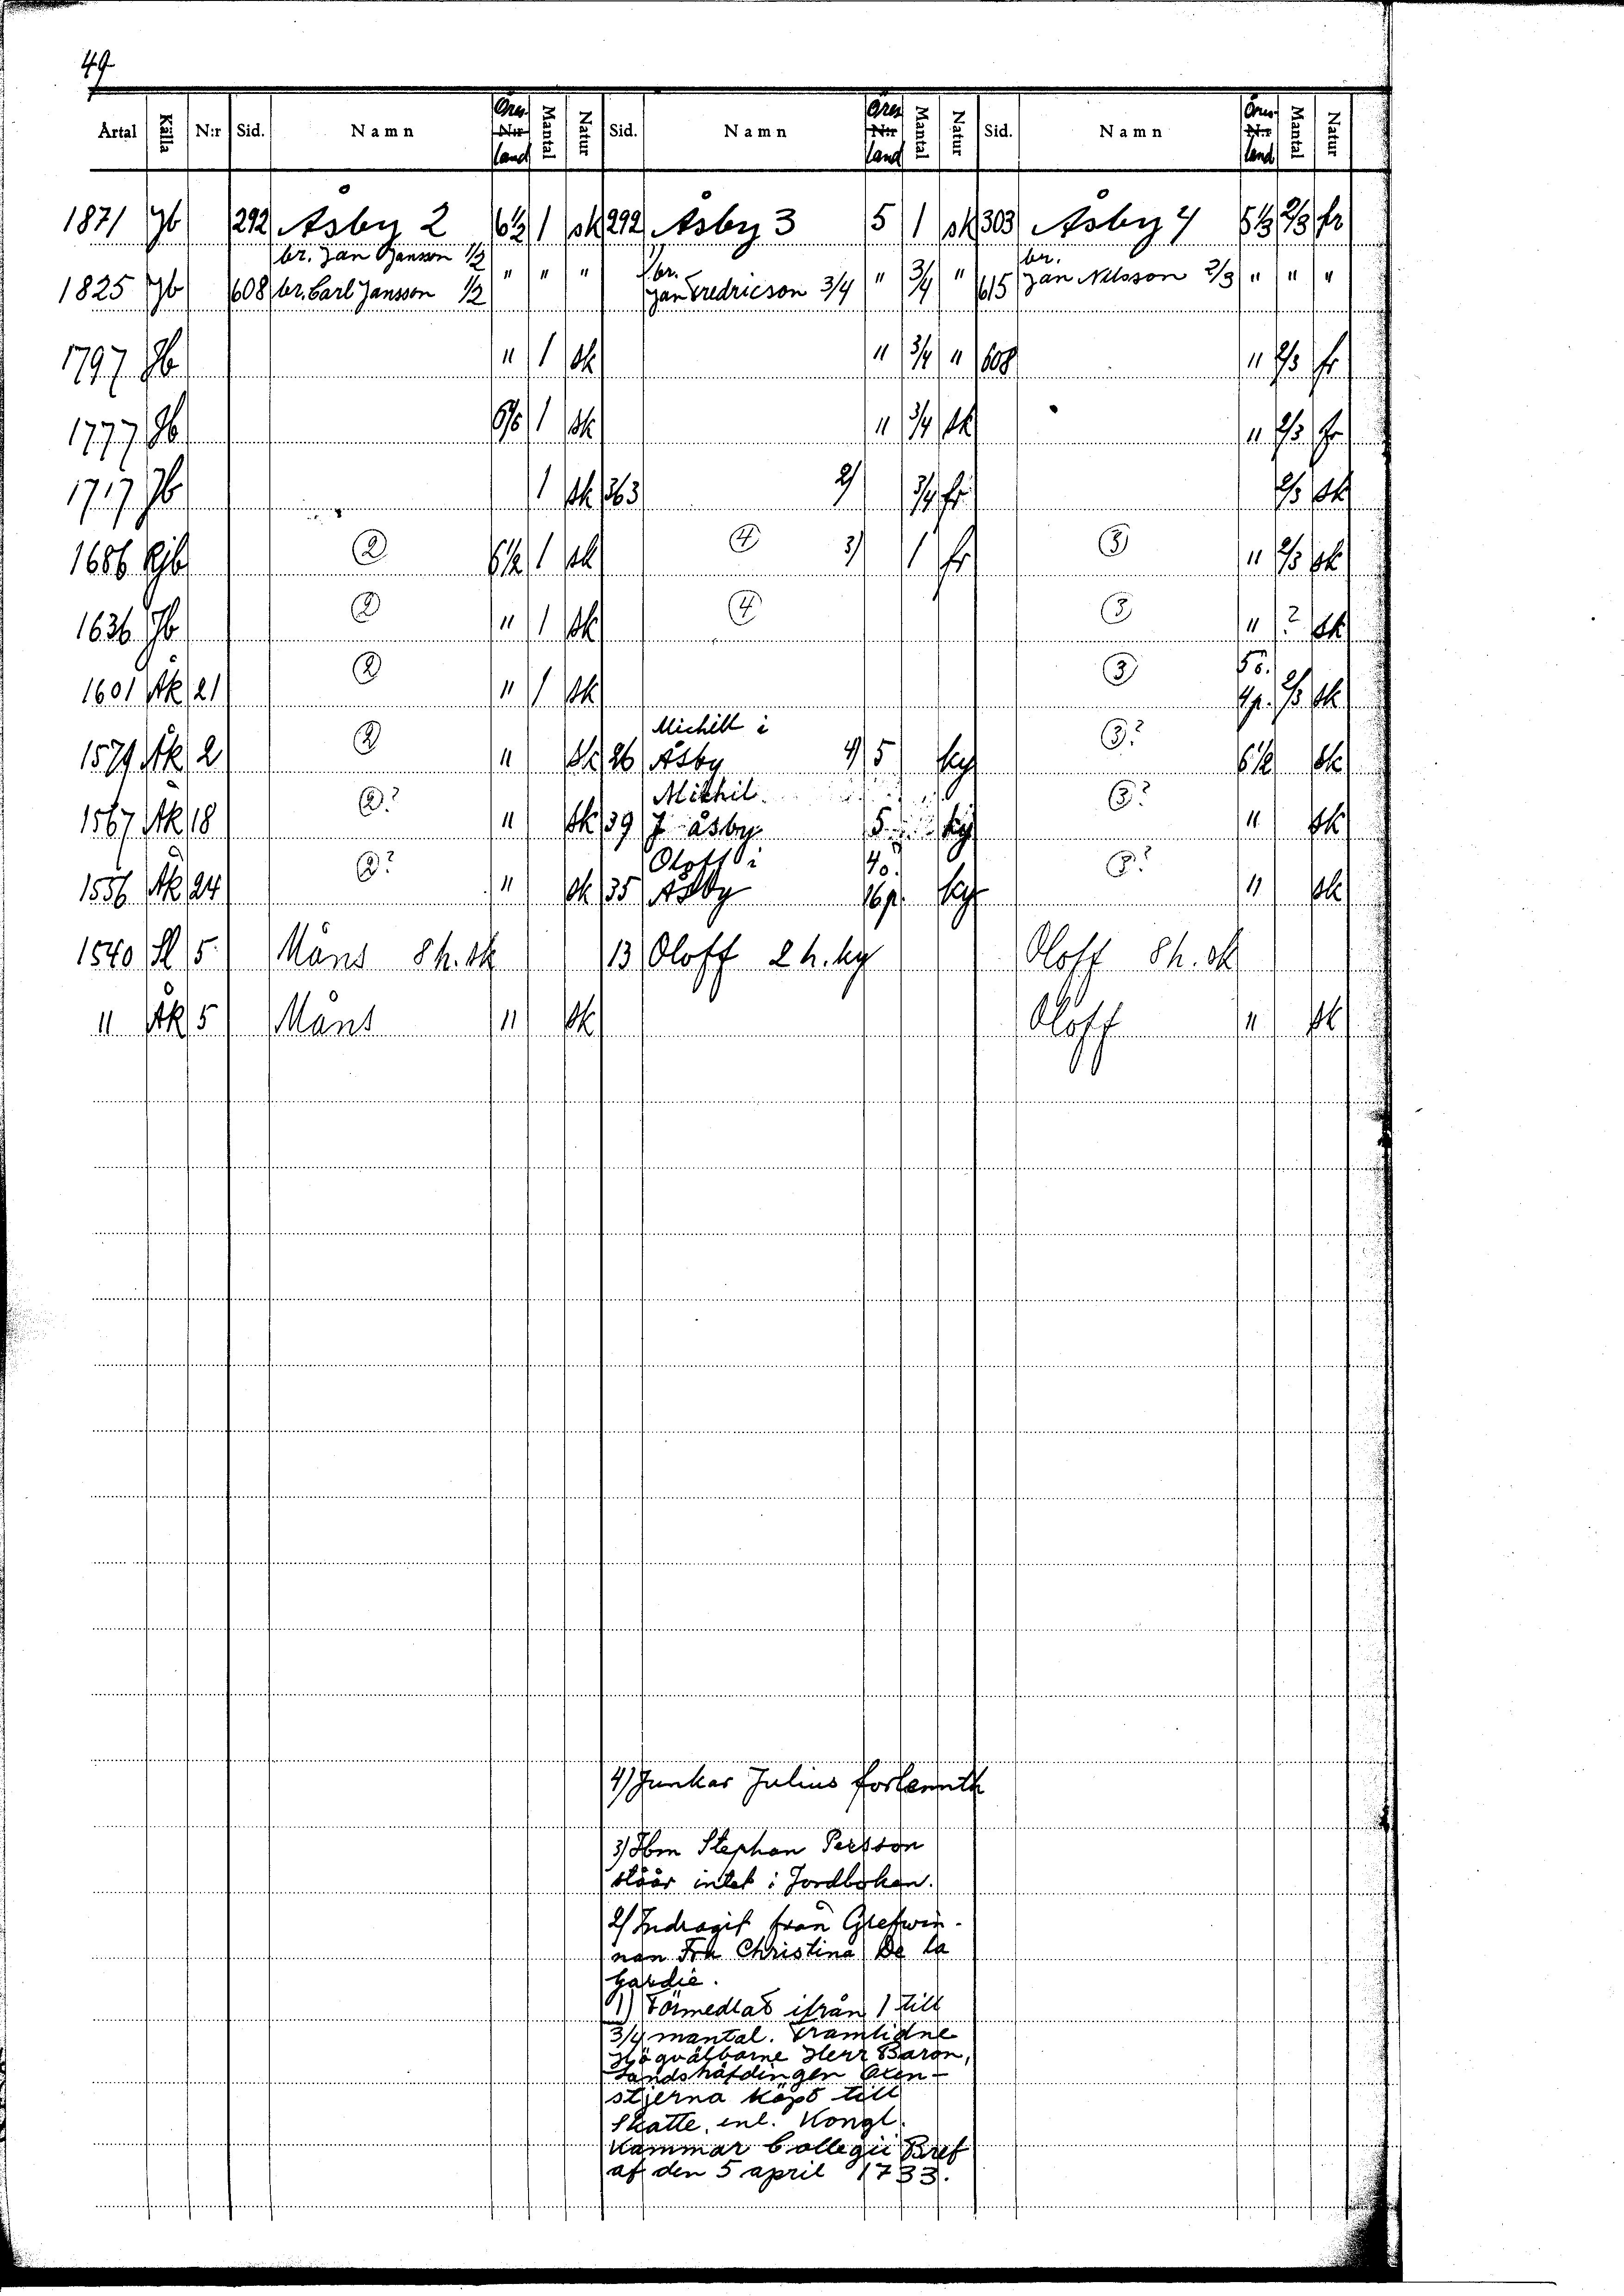 49
Årtal Källa N:r Sid. Namn Öres N:r land Mantal Natur Sid. Namn Öres N:r land Mantal Natur Sid. Namn Öres N:r land Mantal Natur
1871 Jb 292 Åsby 2 6½ 1 sk 292 Åsby 3 5 1 sk 303 Åsby 4 5⅓ 2/3 fr
br. Jan Jansson 1/2 1) br. br.
1825 Jb 608 br. Carl Jansson 1/2 " " " Jan Fredricson 3/4 " 3/4 " 615 Jan Nilsson 2/3 " " "
1797 Jb " 1 sk " 3/4 " 608 " 2/3 fr
1777 Jb 1 sk " 3/4 sk " 2/3 fr
1717 Jb 1 sk 363 2) 3/4 fr 2/3 sk
1686 Rjb 2 6½ 1 sk 4 3) 1 fr 3 " 2/3 sk
1636 Jb 2 " 1 sk 4 3 " ? sk
1601 Äk 21 2 " 1 sk 3 5ö. 4p. 2/3 sk
Michill i
1579 Åk 2 2 " sk 26 Åsby 4) 5 ky 3? 6½ sk
Mikhil
1567 Åk 18 2? " sk 39 J åsby 5 ky 3? " sk
Oloff i 4ö.
1556 Åk 24 2? " sk 35 Åsby 16p. ky 3? " sk
1540 Sl 5 Måns 8 h. sk 13 Oloff 2 h. ky Oloff 8 h. sk
" Åk 5 Måns " sk Oloff " sk
4) Junkar Julius forlennth
3) Hbm Stephan Persson
ståår intet i Jordboken.
2) Indragit från Grefwin-
nan Fru Christina De la
Gardie.
1) Förmedlat ifrån 1 till
3/4 mantal. Framlidne
Högvälborne Herr Baron,
Landshäfdingen Oxen-
stjerna köpt till
Skatte, enl. Kongl.
Kammar Collegii Bref
af den 5 april 1733.